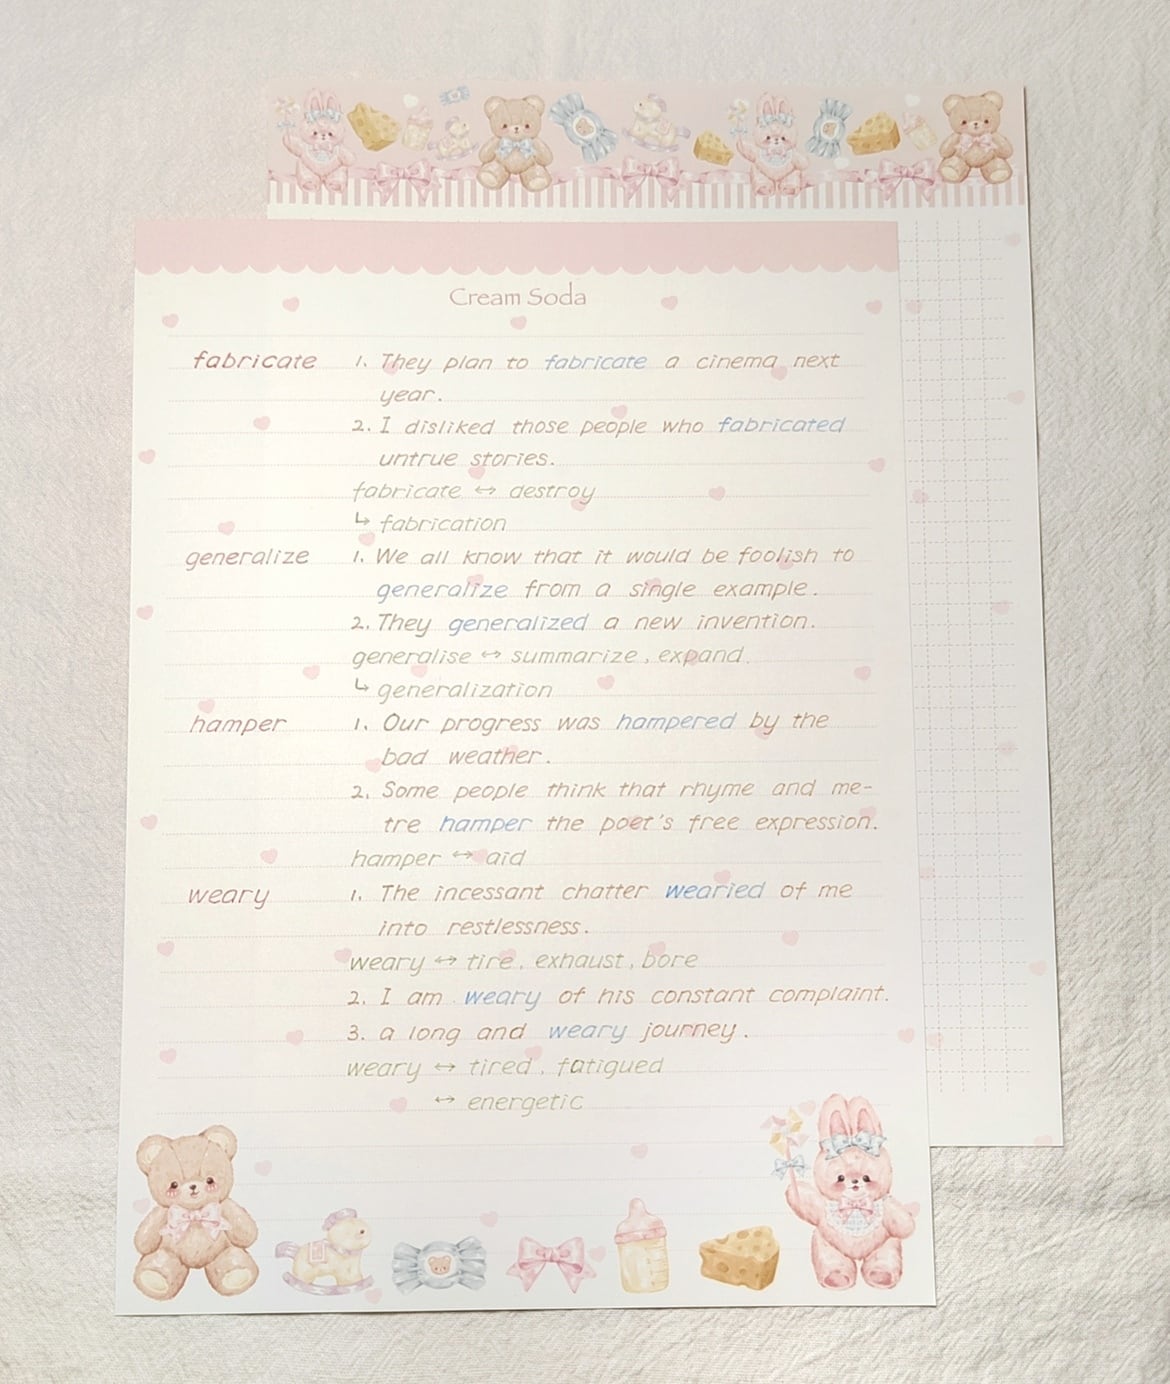 Cream Soda
fabricate 1. They plan to fabricate a cinema next
year.
2. I disliked those people who fabricated
untrue stories.
fabricate ↔ destroy
↳ fabrication
generalize 1. We all know that it would be foolish to
generalize from a single example.
2. They generalized a new invention.
generalise ↔ summarize, expand.
↳ generalization
hamper 1. Our progress was hampered by the
bad weather.
2. Some people think that rhyme and me-
tre hamper the poet's free expression.
hamper ↔ aid
weary 1. The incessant chatter wearied of me
into restlessness.
weary ↔ tire, exhaust, bore
2. I am weary of his constant complaint.
3. a long and weary journey.
weary ↔ tired, fatigued
↔ energetic